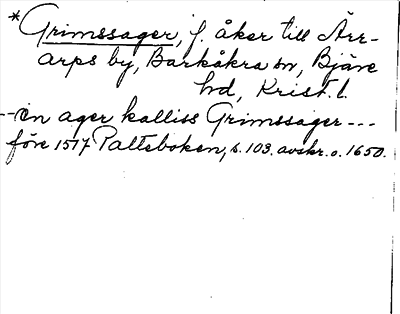 *Grimssager, f. åker till Ärr-
arps by, Barkåkra sn, Bjäre
hd, Krist. l.
--en ager kalliss Grimssager---
före 1517 Palteboken, s. 103. avskr. o. 1650.